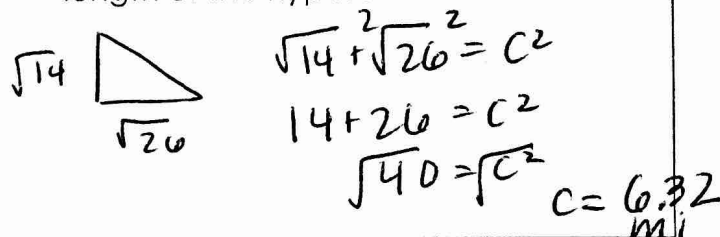 √14
√26
√14² + √26² = C²
14 + 26 = C²
√40 = √C²
C = 6.32
mi